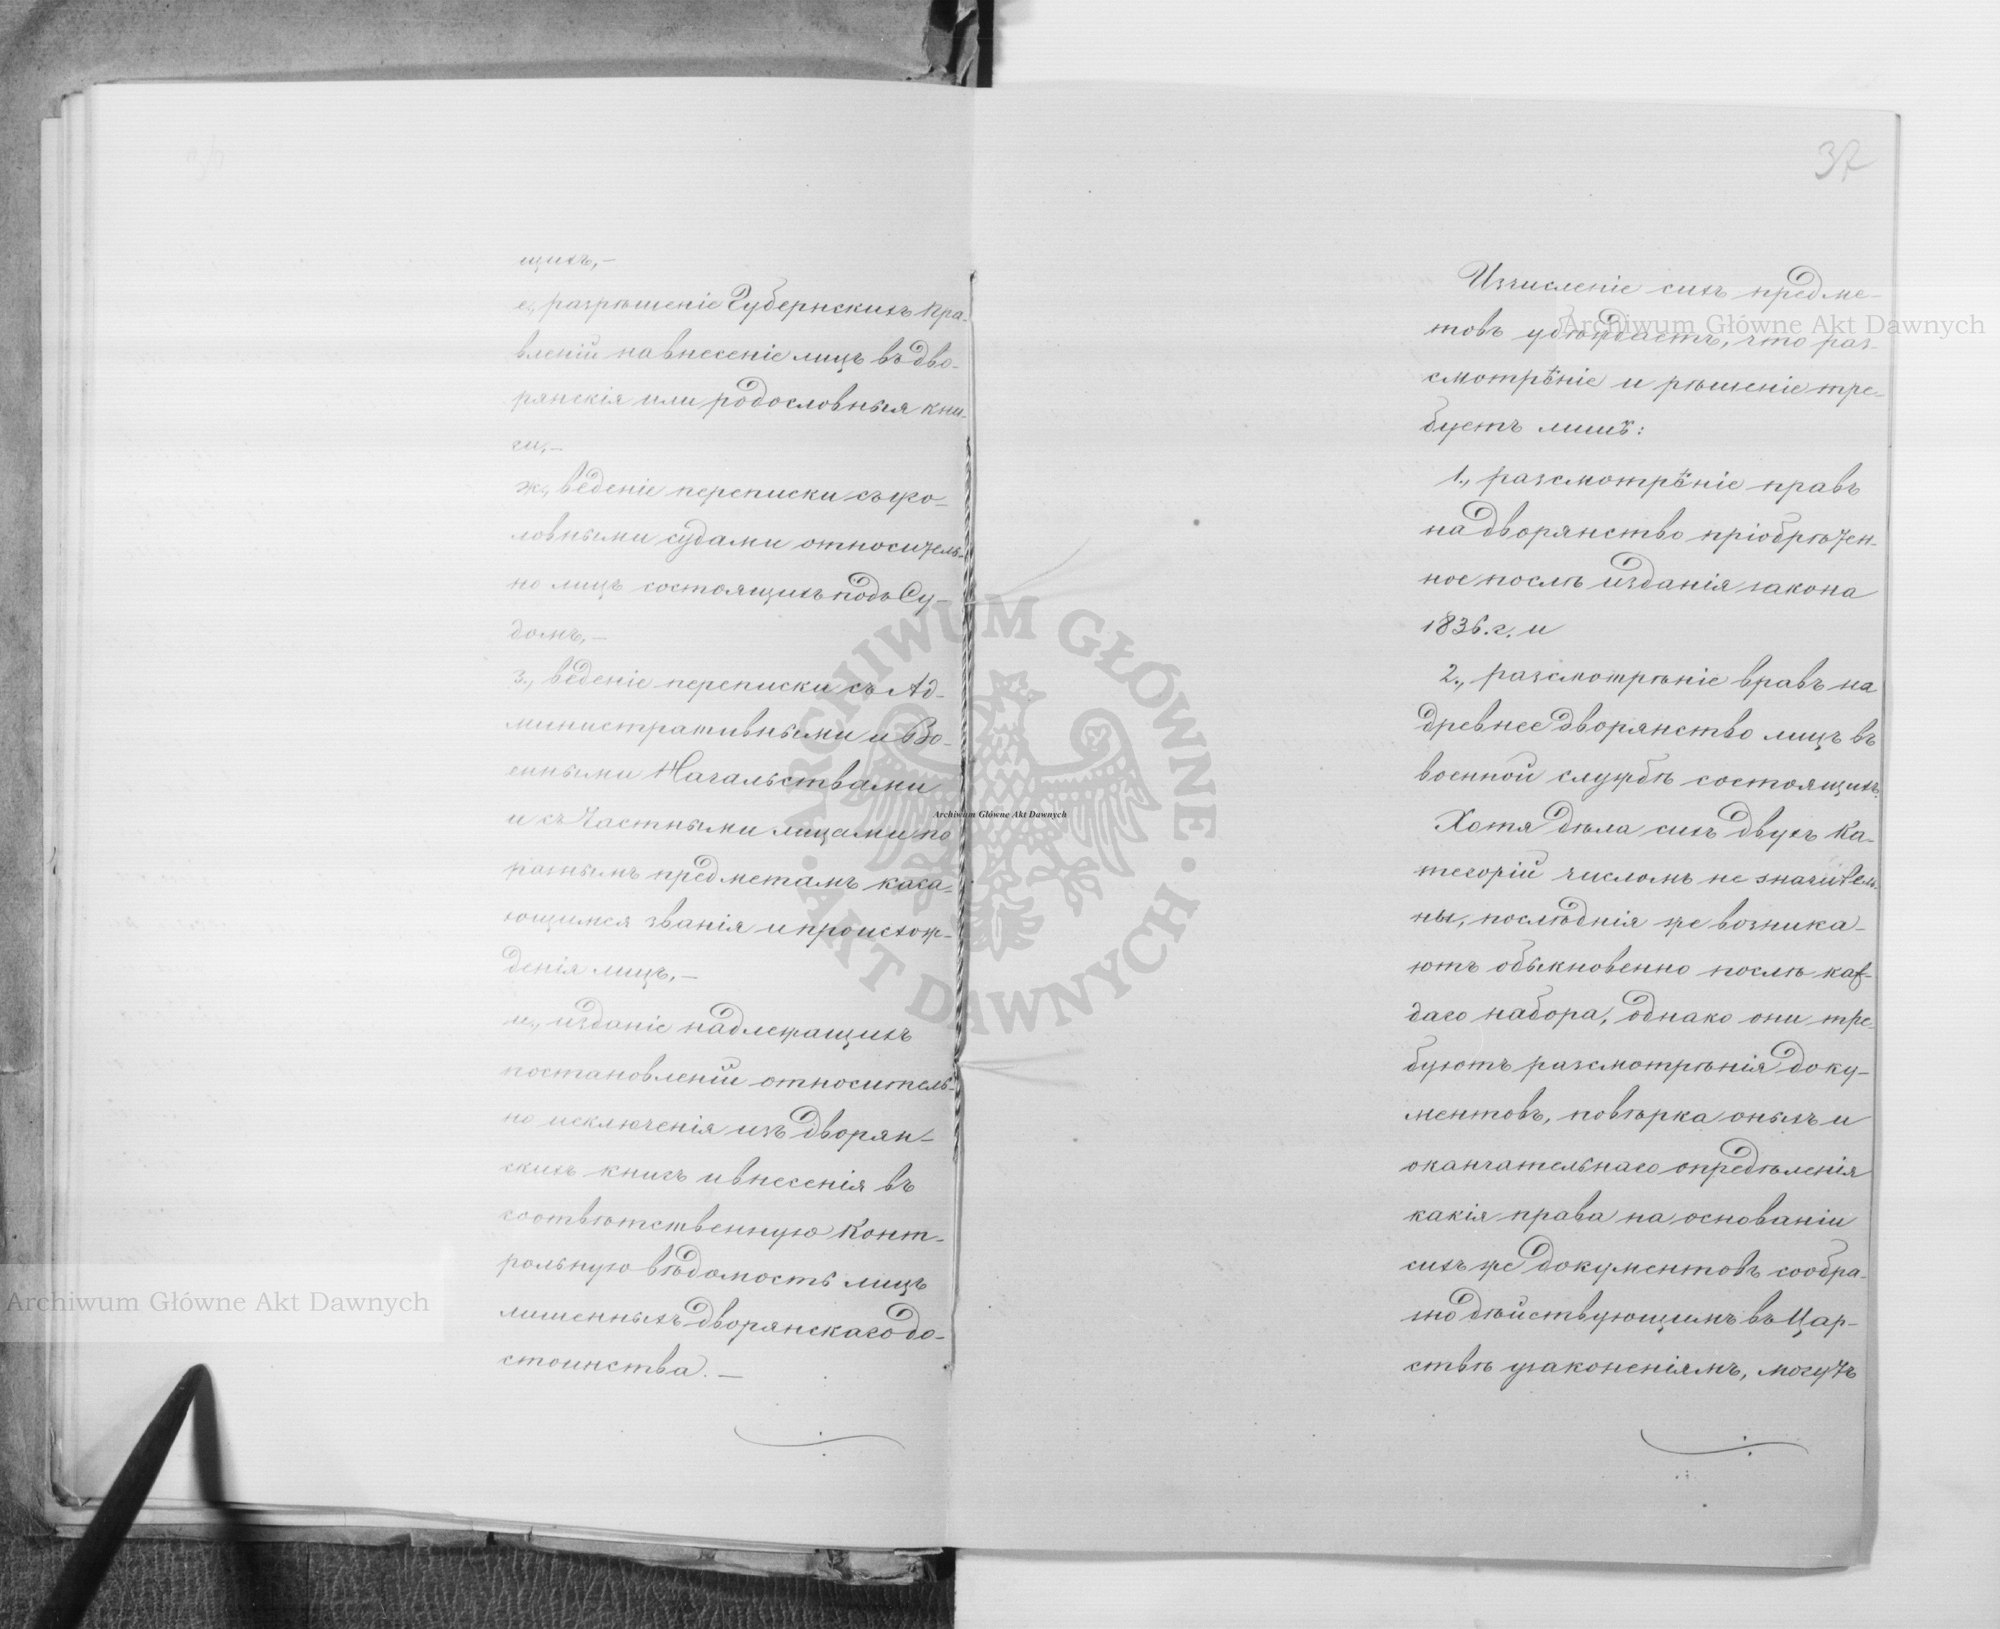 щихъ,—
е., разрѣшеніе Губернскихъ Пра-
вленій на внесеніе лицъ въ дво-
рянскія или родословныя кни-
ги,—
ж., веденіе переписки съ уго-
ловными судами относитель-
но лицъ состоящихъ подъ Су-
домъ,—
з., веденіе переписки съ Ад-
министративными и Во-
енными Начальствами
и съ Частными лицами по
разнымъ предметамъ каса-
ющимся званія и происхож-
денія лицъ,—
и., изданіе надлежащихъ
постановленій относитель-
но исключенія изъ дворян-
скихъ книгъ и внесенія въ
соотвѣтственную Конт-
рольную вѣдомость лицъ
лишенныхъ дворянскаго до-
стоинства.—
37
Изчисленіе сихъ предме-
товъ убѣждаетъ, что раз-
смотрѣніе и рѣшеніе тре-
буетъ лишъ:
1., разсмотрѣніе правъ
на дворянство пріобрѣтен-
ное послѣ изданія закона
1836.г. и
2., разсмотрѣніе вравъ на
древнее дворянство лицъ въ
военной службѣ состоящихъ.
Хотя дѣла сихъ двухъ Ка-
тегорій числомъ не значитель-
ны, послѣднія же возника-
ютъ обыкновенно послѣ каж-
даго набора, однако они тре-
буютъ разсмотрѣнія доку-
ментовъ, повѣрка оныхъ и
оканчательнаго опредѣленія
какія права на основаніи
сихъ же документовъ сообра-
зно дѣйствующимъ въ Цар-
ствѣ узаконеніямъ, могутъ
Archiwum Główne Akt Dawnych
Archiwum Główne Akt Dawnych
Archiwum Główne Akt Dawnych
ARCHIWUM GŁÓWNE · AKT DAWNYCH ·